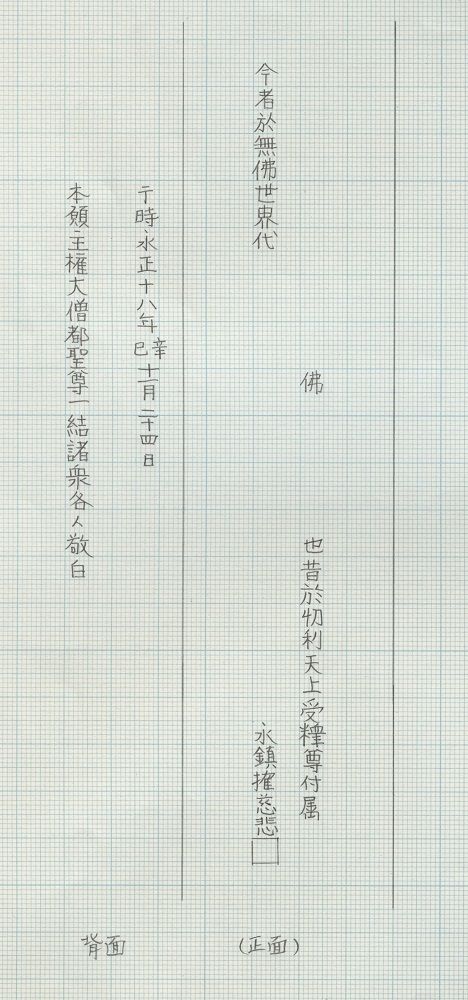 佛
也昔於忉利天上受釋尊付属
今者於無佛世界代
永鎮慈悲□
(正面)
于時永正十八年辛巳十一月二十四日
本願主権大僧都聖尊一結諸衆各人敬白
背面